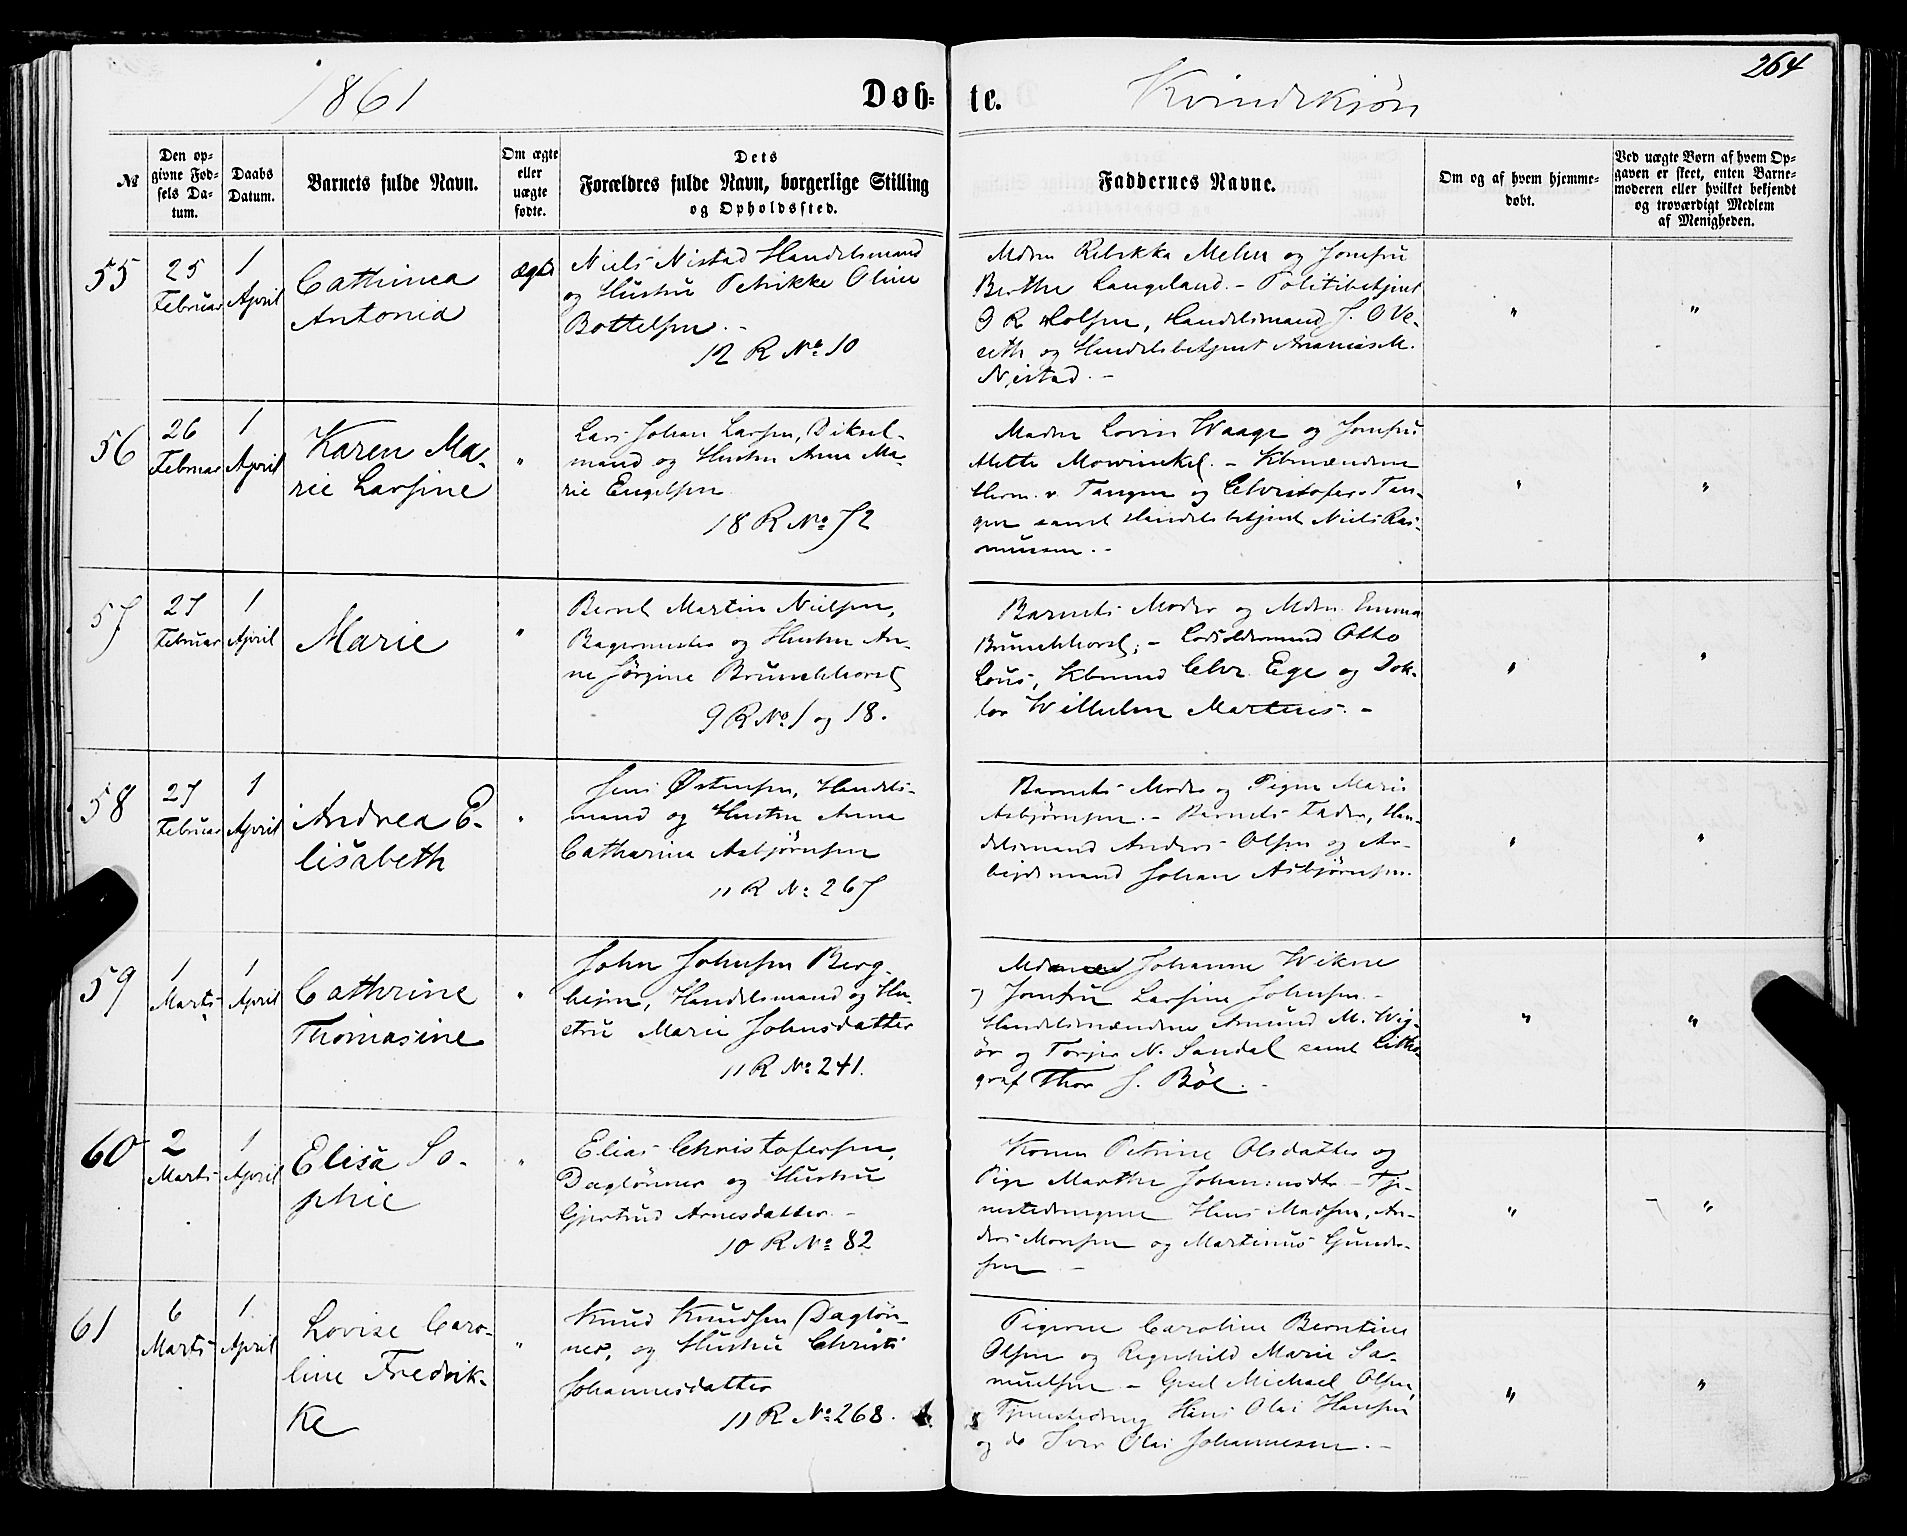 264
1861
Døb-te.
Kvindekjøn
№
Den op-
givne Fød-
sels Da-
tum.
Daabs
Datum.
Barnets fulde Navn.
Om ægte
eller
uægte
fødte.
Dets
Forældres fulde Navn, borgerlige Stilling
og Opholdssted.
Faddernes Navne.
Om og af hvem hjemme-
døbt.
Ved uægte Børn af hvem Op-
gaven er skeet, enten Barne-
moderen eller hvilket bekjendt
og troværdigt Medlem
af Menigheden.
55
25
Februar
1
April
Cathinca
Antonia
ægte
Niels Nistad Handelsmand
og Hustru Petrikke Oline
Bottelsen.-
12 R № 10
Mdm Rebekka Mehn og Jomfru
Berthe Langeland. - Politibetjent
O R Holsen, Handelsmand J. O Ve-
seth og Handelsbetjent Ananias M.
Nistad.-
"
"
56
26
Februar
1
April
Karen Ma-
rie Larsine
"
Lars Johan Larsen, Diksel-
mand og Hustru Anna Ma-
rie Engelsen
18 R № 72
Madm Lovise Waage og Jomfru
Mette Mowinckel. - Kbmændene
Herm. v. Tangen og Christofer v Tan-
gen samt Handelsbetjent Niels Ras-
mussen.-
"
"
57
27
Februar
1
April
Marie
"
Bernt Martin Nielsen,
Bagermester og Hustru An-
ne Jørgine Brunchhorst
9 R № 1 og 18.
Barnets Moder og Mdm Emma
Brunchhorst; - Lodsoldermand Otto
Lous, Kbmand Chr. Ege og Dok-
tor Wilhelm Martens.-
"
"
58
27
Februar
1
April
Andrea E-
lisabeth
"
Jens Østensen, Handels-
mand og Hustru Anna
Catharina Asbjørnsen
11 R № 267
Barnets Moder og Pigen Maria
Asbjørnsen.- Barnets Fader, Han-
delsmand Anders Olsen og Ar-
beidsmand Johan Asbjørnsen.
"
"
59
1
Marts
1
April
Cathrine
Thomasine
"
John Johnsen Berg-
heim, Handelsmand og Hu-
stru Marie Johnsdatter
11 R № 241.
Johanne Wikne
og Jomfru Larsine Johnsen.-
Handelsmændene Amund M. Wig-
ør og Torger N. Sandal samt Litho-
graf Thor J. Böe.-
"
"
60
2
Marts
1
April
Elisa So-
phie
"
Elias Christofersen,
Daglønner og Hustru
Gjertrud Arnesdatter.-
10 R № 82
Konen Petrine Olsdatter og
Pige Marthe Johannesdtr - Tje-
nestedrengene Hans Madsen, An-
ders Monsen og Martinus Gunder-
sen -
"
"
61
6
Marts
1.
April
Lovise Caro-
line Fredrik-
ke
"
Knud Knudsen Dagløn-
ner, og Hustru Christi
Johannesdatter
11 R № 268.
Pigerne Caroline Berntine
Olsen og Regnhild Marie Sa-
muelsen - Gesel Michael Olsen,
Tjenestedreng Hans Olai Hansen
og do Iver Olai Johannesen.-
"
"